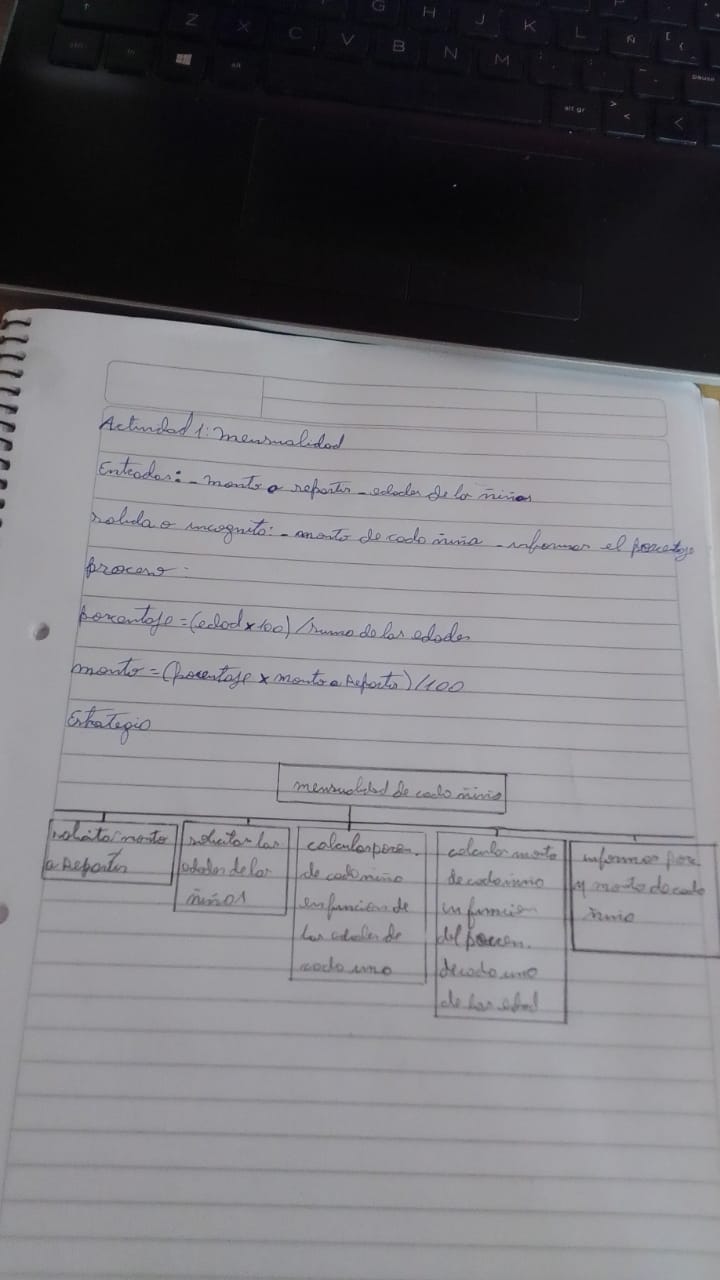 Z X C V B N M
G H J K L Ñ
alt
alt gr
pause
Actividad 1: mensualidad
Entradas: - monto a repartir - edades de lo niños
salida o incognita: - monto de cada niño - informar el porcetaje
proceso:
porcentaje = (edad x 100) / suma de las edades
monto = (porcentaje x monto a Repartir) / 100
Estrategia
mensualidad de cada niño
solicitar monto
a Repartir
solicitar las
edades de los
niños
calcular porcen.
de cada niño
en funcion de
las edades de
cada uno
calcular monto
de cada niño
en funcion
del porcen.
de cada uno
de las edad
informar por
y monto de cada
niño